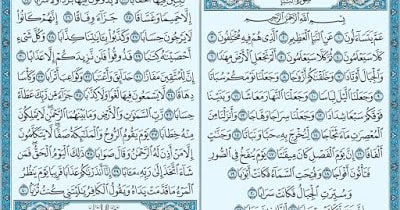 سُورَةُ النَّبَإِ
بِسْمِ اللَّهِ الرَّحْمَٰنِ الرَّحِيمِ
عَمَّ يَتَسَاءَلُونَ ۝١ عَنِ النَّبَإِ الْعَظِيمِ ۝٢ الَّذِي هُمْ فِيهِ مُخْتَلِفُونَ ۝٣
كَلَّا سَيَعْلَمُونَ ۝٤ ثُمَّ كَلَّا سَيَعْلَمُونَ ۝٥ أَلَمْ نَجْعَلِ الْأَرْضَ مِهَادًا ۝٦
وَالْجِبَالَ أَوْتَادًا ۝٧ وَخَلَقْنَاكُمْ أَزْوَاجًا ۝٨ وَجَعَلْنَا نَوْمَكُمْ سُبَاتًا ۝٩
وَجَعَلْنَا اللَّيْلَ لِبَاسًا ۝١٠ وَجَعَلْنَا النَّهَارَ مَعَاشًا ۝١١ وَبَنَيْنَا
فَوْقَكُمْ سَبْعًا شِدَادًا ۝١٢ وَجَعَلْنَا سِرَاجًا وَهَّاجًا ۝١٣ وَأَنزَلْنَا مِنَ
الْمُعْصِرَاتِ مَاءً ثَجَّاجًا ۝١٤ لِّنُخْرِجَ بِهِ حَبًّا وَنَبَاتًا ۝١٥ وَجَنَّاتٍ
أَلْفَافًا ۝١٦ إِنَّ يَوْمَ الْفَصْلِ كَانَ مِيقَاتًا ۝١٧ يَوْمَ يُنفَخُ فِي الصُّورِ
فَتَأْتُونَ أَفْوَاجًا ۝١٨ وَفُتِحَتِ السَّمَاءُ فَكَانَتْ أَبْوَابًا ۝١٩
وَسُيِّرَتِ الْجِبَالُ فَكَانَتْ سَرَابًا ۝٢٠
إِلَّا حَمِيمًا وَغَسَّاقًا ۝٢٥ جَزَاءً وِفَاقًا ۝٢٦ إِنَّهُمْ كَانُوا
لَا يَرْجُونَ حِسَابًا ۝٢٧ وَكَذَّبُوا بِآيَاتِنَا كِذَّابًا ۝٢٨ وَكُلَّ شَيْءٍ
أَحْصَيْنَاهُ كِتَابًا ۝٢٩ فَذُوقُوا فَلَن نَّزِيدَكُمْ إِلَّا عَذَابًا ۝٣٠
إِنَّ لِلْمُتَّقِينَ مَفَازًا ۝٣١ حَدَائِقَ وَأَعْنَابًا ۝٣٢ وَكَوَاعِبَ أَتْرَابًا ۝٣٣ وَكَأْسًا
دِهَاقًا ۝٣٤ لَّا يَسْمَعُونَ فِيهَا لَغْوًا وَلَا كِذَّابًا ۝٣٥ جَزَاءً مِّن رَّبِّكَ عَطَاءً
حِسَابًا ۝٣٦ رَّبِّ السَّمَاوَاتِ وَالْأَرْضِ وَمَا بَيْنَهُمَا الرَّحْمَٰنِ لَا يَمْلِكُونَ
مِنْهُ خِطَابًا ۝٣٧ يَوْمَ يَقُومُ الرُّوحُ وَالْمَلَائِكَةُ صَفًّا لَّا يَتَكَلَّمُونَ
إِلَّا مَنْ أَذِنَ لَهُ الرَّحْمَٰنُ وَقَالَ صَوَابًا ۝٣٨ ذَٰلِكَ الْيَوْمُ الْحَقُّ فَمَن
شَاءَ اتَّخَذَ إِلَىٰ رَبِّهِ مَآبًا ۝٣٩ إِنَّا أَنذَرْنَاكُمْ عَذَابًا قَرِيبًا يَوْمَ يَنظُرُ
الْمَرْءُ مَا قَدَّمَتْ يَدَاهُ وَيَقُولُ الْكَافِرُ يَا لَيْتَنِي كُنتُ تُرَابًا